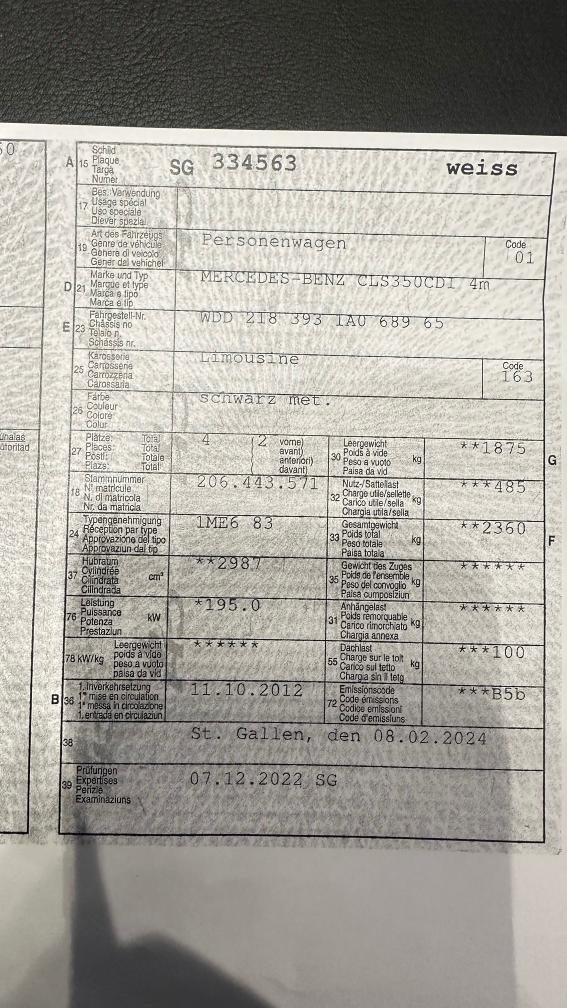 50
A 15 Schild
Plaque
Targa
Numer
SG 334563 weiss
17 Bes. Verwendung
Usage spécial
Uso speciale
Diever spezial
19 Art des Fahrzeugs
Genre de véhicule
Genere di veicolo
Gener dal vehichel
Personenwagen
Code
01
D 21 Marke und Typ
Marque et type
Marca e tipo
Marca e tip
MERCEDES-BENZ CLS350CDI 4m
E 23 Fahrgestell-Nr.
Châssis no
Telaio n.
Schassis nr.
WDD 218 393 1A0 689 65
25 Karosserie
Carrosserie
Carrozzeria
Carossaria
Limousine
Code
163
26 Farbe
Couleur
Colore
Colur
schwarz met.
27 Plätze: Total
Places: Total
Posti: Totale
Plazs: Total
4 (2 vorne)
avant)
anteriori)
davant)
30 Leergewicht
Poids à vide
Peso a vuoto
Paisa da vid
kg
**1875
G
18 Stammnummer
N° matricule
N. di matricola
Nr. da matricla
206.443.571
32 Nutz-/Sattellast
Charge utile/sellette
Carico utile/sella
Chargia utila/sella
kg
***485
24 Typengenehmigung
Réception par type
Approvazione del tipo
Approvaziun dal tip
1ME6 83
33 Gesamtgewicht
Poids total
Peso totale
Paisa totala
kg
**2360
F
37 Hubraum
Cylindrée
Cilindrata
Cilindrada
cm³
**2987
35 Gewicht des Zuges
Poids de l'ensemble
Peso del convoglio
Paisa cumposiziun
kg
******
76 Leistung
Puissance
Potenza
Prestaziun
kW
*195.0
31 Anhängelast
Poids remorquable
Carico rimorchiato
Chargia annexa
kg
******
78 kW/kg Leergewicht
poids à vide
peso a vuoto
paisa da vid
******
55 Dachlast
Charge sur le toit
Carico sul tetto
Chargia sin il tetg
kg
***100
B 36 1. Inverkehrsetzung
1re mise en circulation
1a messa in circolazione
1. entrada en circulaziun
11.10.2012
72 Emissionscode
Code émissions
Codice emissioni
Code d'emissiuns
***B5b
38
St. Gallen, den 08.02.2024
39 Prüfungen
Expertises
Perizie
Examinaziuns
07.12.2022 SG